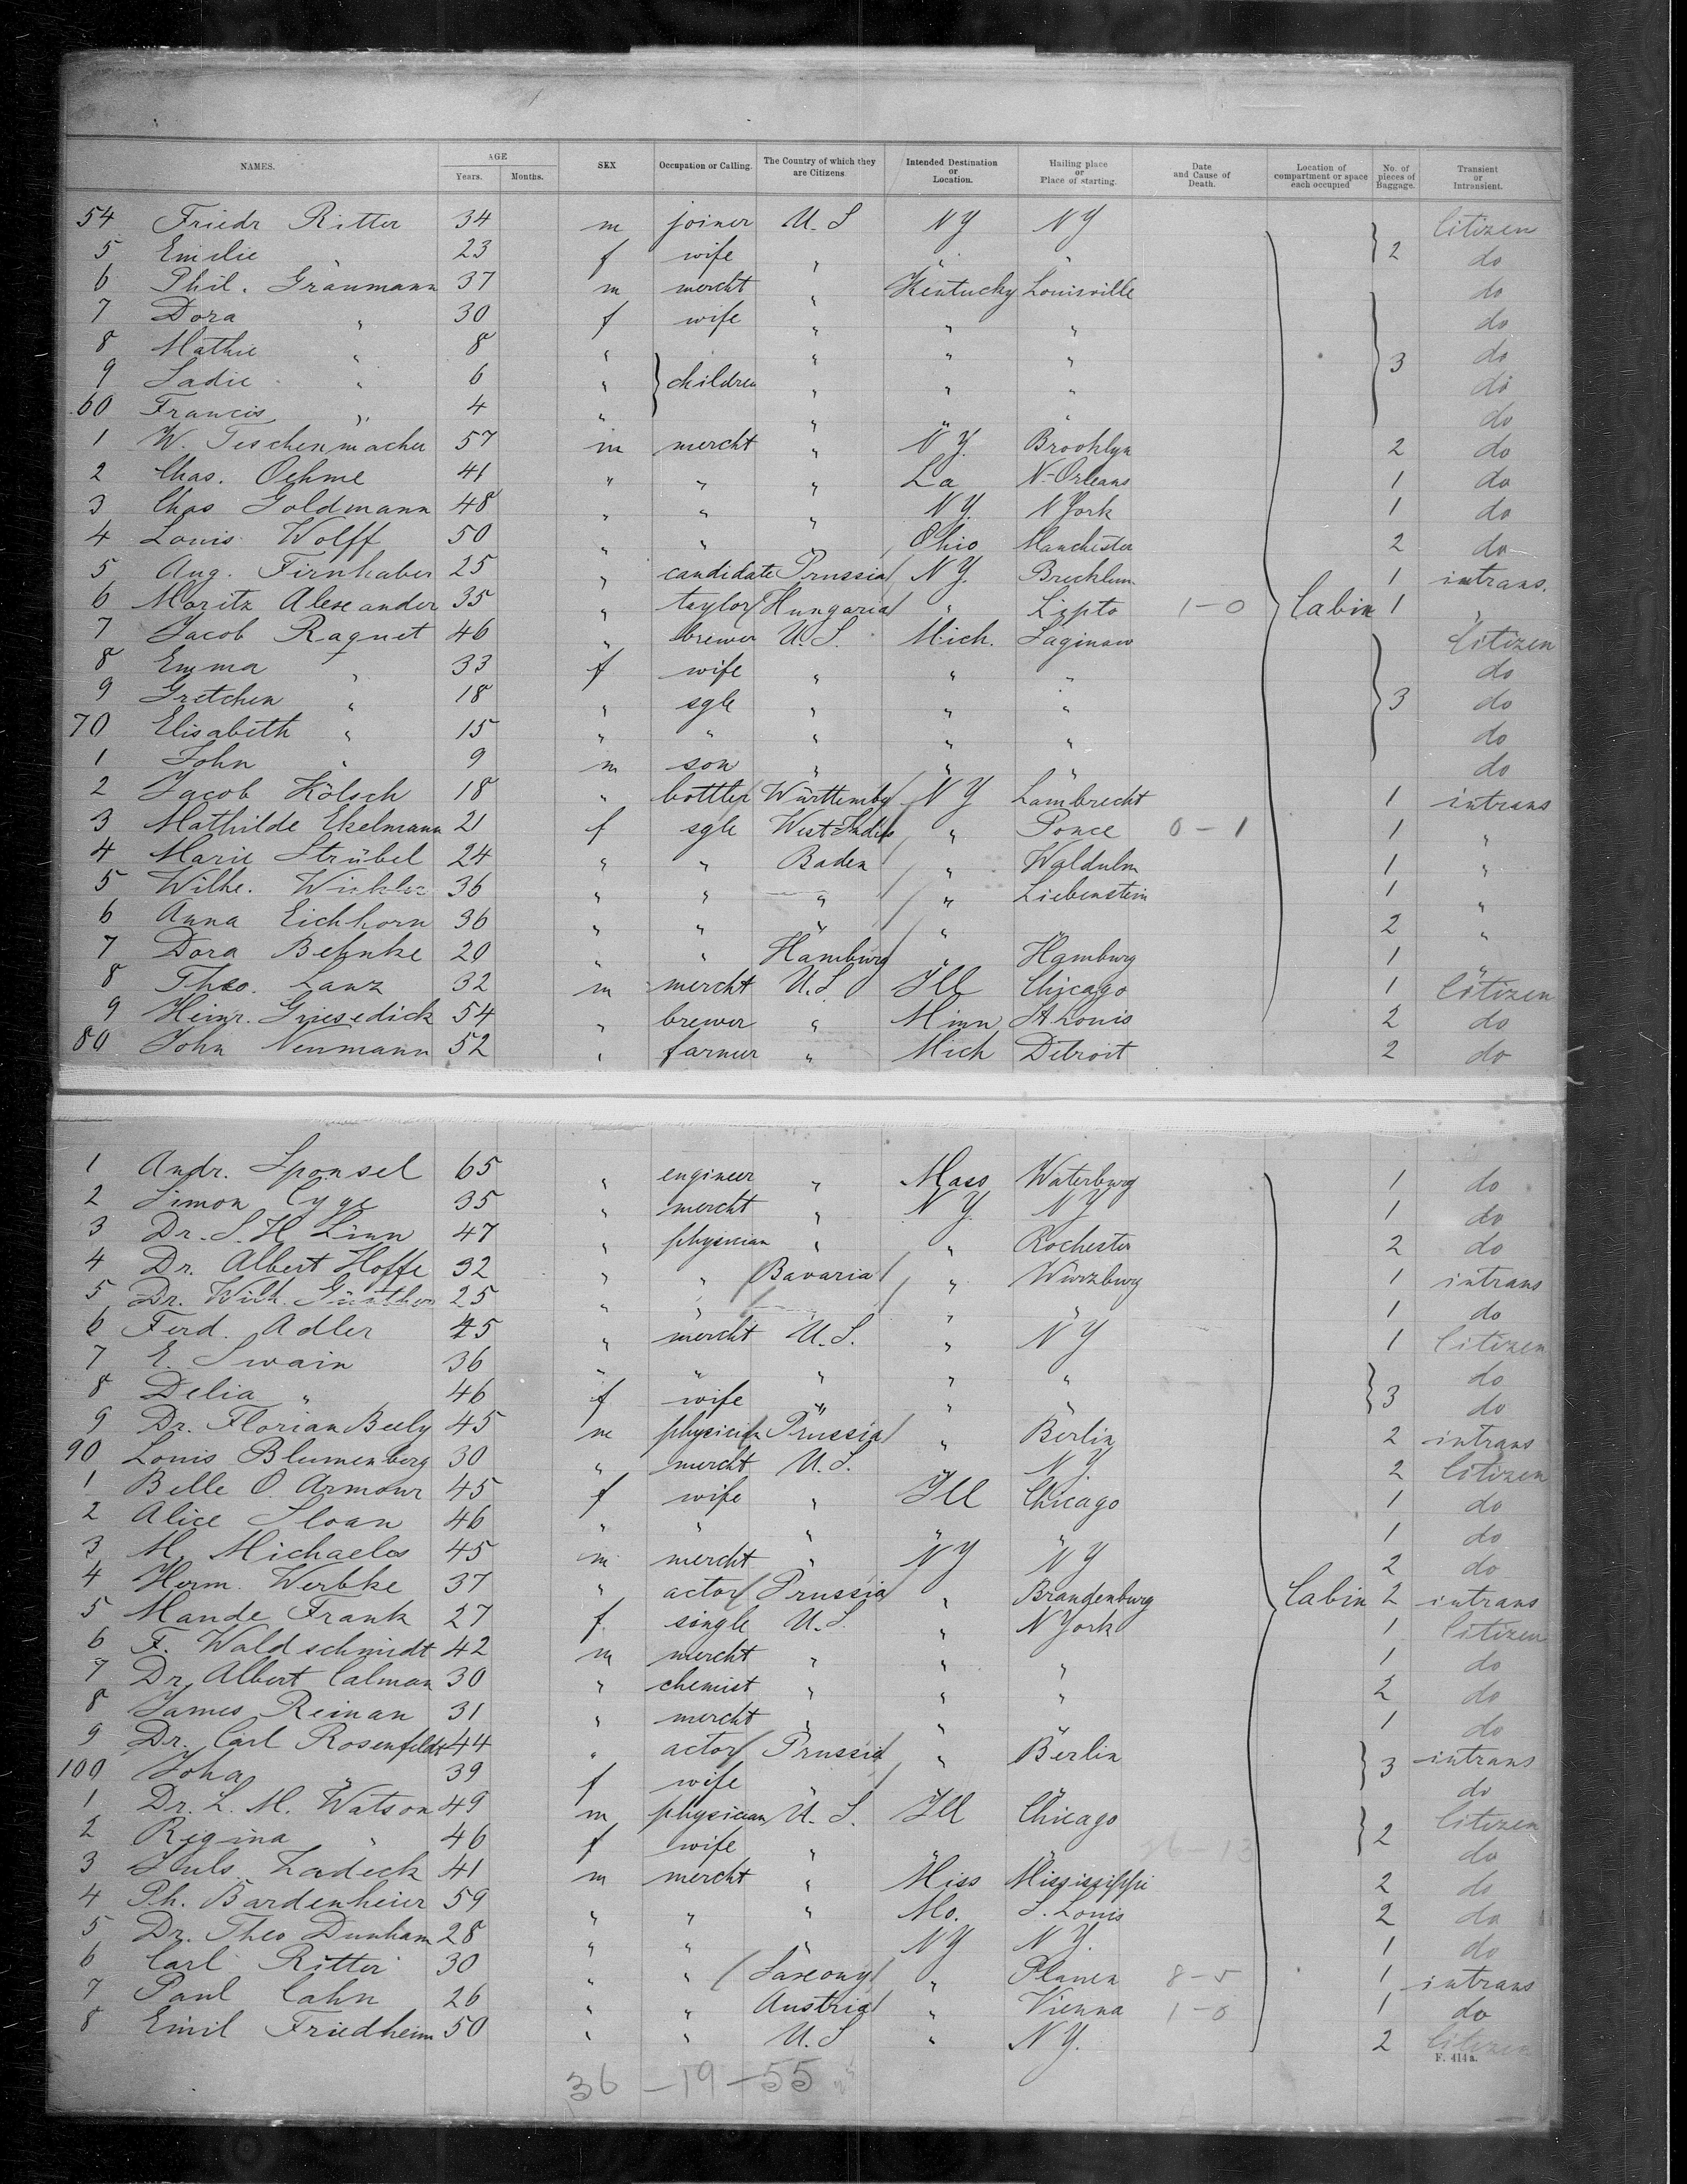 NAMES. AGE Years. Months. SEX Occupation or Calling. The Country of which they are Citizens. Intended Destination or Location. Hailing place or Place of starting. Date and Cause of Death. Location of compartment or space each occupied No. of pieces of Baggage. Transient or Intransient.
54 Friedr Ritter 34 m joiner U.S NY NY Citizen
5 Emilie " 23 f wife " " " 2 do
6 Phil. Graumann 37 m mercht " Kentucky Louisville do
7 Dora " 30 f wife " " " do
8 Mathie " 8 " " " " 3 do
9 Sadie " 6 " children " " " do
60 Francis " 4 " " " " do
1 W. Teschenmacher 57 m mercht " N.Y. Brooklyn 2 do
2 Chas. Oehme 41 " " " La N-Orleans 1 do
3 Chas Goldmann 48 " " " N.Y. N York 1 do
4 Louis Wolff 50 " " " Ohio Manchester 2 do
5 Aug. Firnhaber 25 " candidate Prussia N.Y. Brecklum 1 intrans.
6 Moritz Alexander 35 " taylor Hungaria " Lipto 1-0 Cabin 1 "
7 Jacob Raquet 46 " brewer U.S. Mich. Saginaw Citizen
8 Emma " 33 f wife " " " do
9 Gretchen " 18 " sgle " " " 3 do
70 Elisabeth " 15 " " " " " do
1 John " 9 m son " " " do
2 Jacob Kölsch 18 " bottler Württembg NY Lambrecht 1 intrans
3 Mathilde Ekelmann 21 f sgle West Indies " Ponce 0-1 1 "
4 Marie Strübel 24 " " Baden " Waldulm 1 "
5 Wilhe. Winkler 36 " " " " Liebenstein 1 "
6 Anna Eichhorn 36 " " " " 2 "
7 Dora Behnke 20 " " Hamburg " Hamburg 1 "
8 Theo. Lanz 32 m mercht U.S Ill Chicago 1 Citizen
9 Heinr. Griesedick 54 " brewer " Minn St. Louis 2 do
80 John Neumann 52 " farmer " Mich Detroit 2 do
1 Andr. Sponsel 65 " engineer " Mass Waterburg 1 do
2 Simon Cyge 35 " mercht " N.Y NY 1 do
3 Dr. S. H. Linn 47 " physician " " Rochester 2 do
4 Dr. Albert Hoffe 32 " " Bavaria " Wurzburg 1 intrans
5 Dr. Wilh. Günther 25 " " " " 1 do
6 Ferd. Adler 45 " mercht U.S. " NY 1 Citizen
7 E. Swain 36 " " " " " do
8 Delia " 46 f wife " " " 3 do
9 Dr. Florian Beely 45 m physician Prussia " Berlin 2 intrans
90 Louis Blumenberg 30 " mercht U.S. " N.Y 2 Citizen
1 Belle O. Armour 45 f wife " Ill Chicago 1 do
2 Alice Sloan 46 " " " " " 1 do
3 M. Michaelos 45 m mercht " NY NY 2 do
4 Herm. Werbke 37 " actor Prussia " Brandenburg Cabin 2 intrans
5 Maude Frank 27 f. single U.S. " N York 1 Citizen
6 F. Waldschmidt 42 m mercht " " " 1 do
7 Dr. Albert Calman 30 " chemist " " " 2 do
8 James Reinan 31 " mercht " " " 1 do
9 Dr. Carl Rosenfeldt 44 " actor Prussia " Berlin 3 intrans
100 Joha " 39 f wife " " " do
1 Dr. L. M. Watson 49 m physician U.S. Ill Chicago Citizen
2 Regina " 46 f wife " " " 2 do
3 Juls Ladeck 41 m mercht " Miss Mississippi 2 do
4 Ph. Bardenheier 59 " " " Mo. S. Louis 2 do
5 Dr. Theo Dunham 28 " " " NY N.Y. 1 do
6 Carl Ritter 30 " " Saxony " Plauen 8-5 1 intrans
7 Paul Cahn 26 " " Austria " Vienna 1-0 1 do
8 Emil Friedheim 50 " " U.S " N.Y. 2 Citizen
F. 414a.
36 - 19 - 55